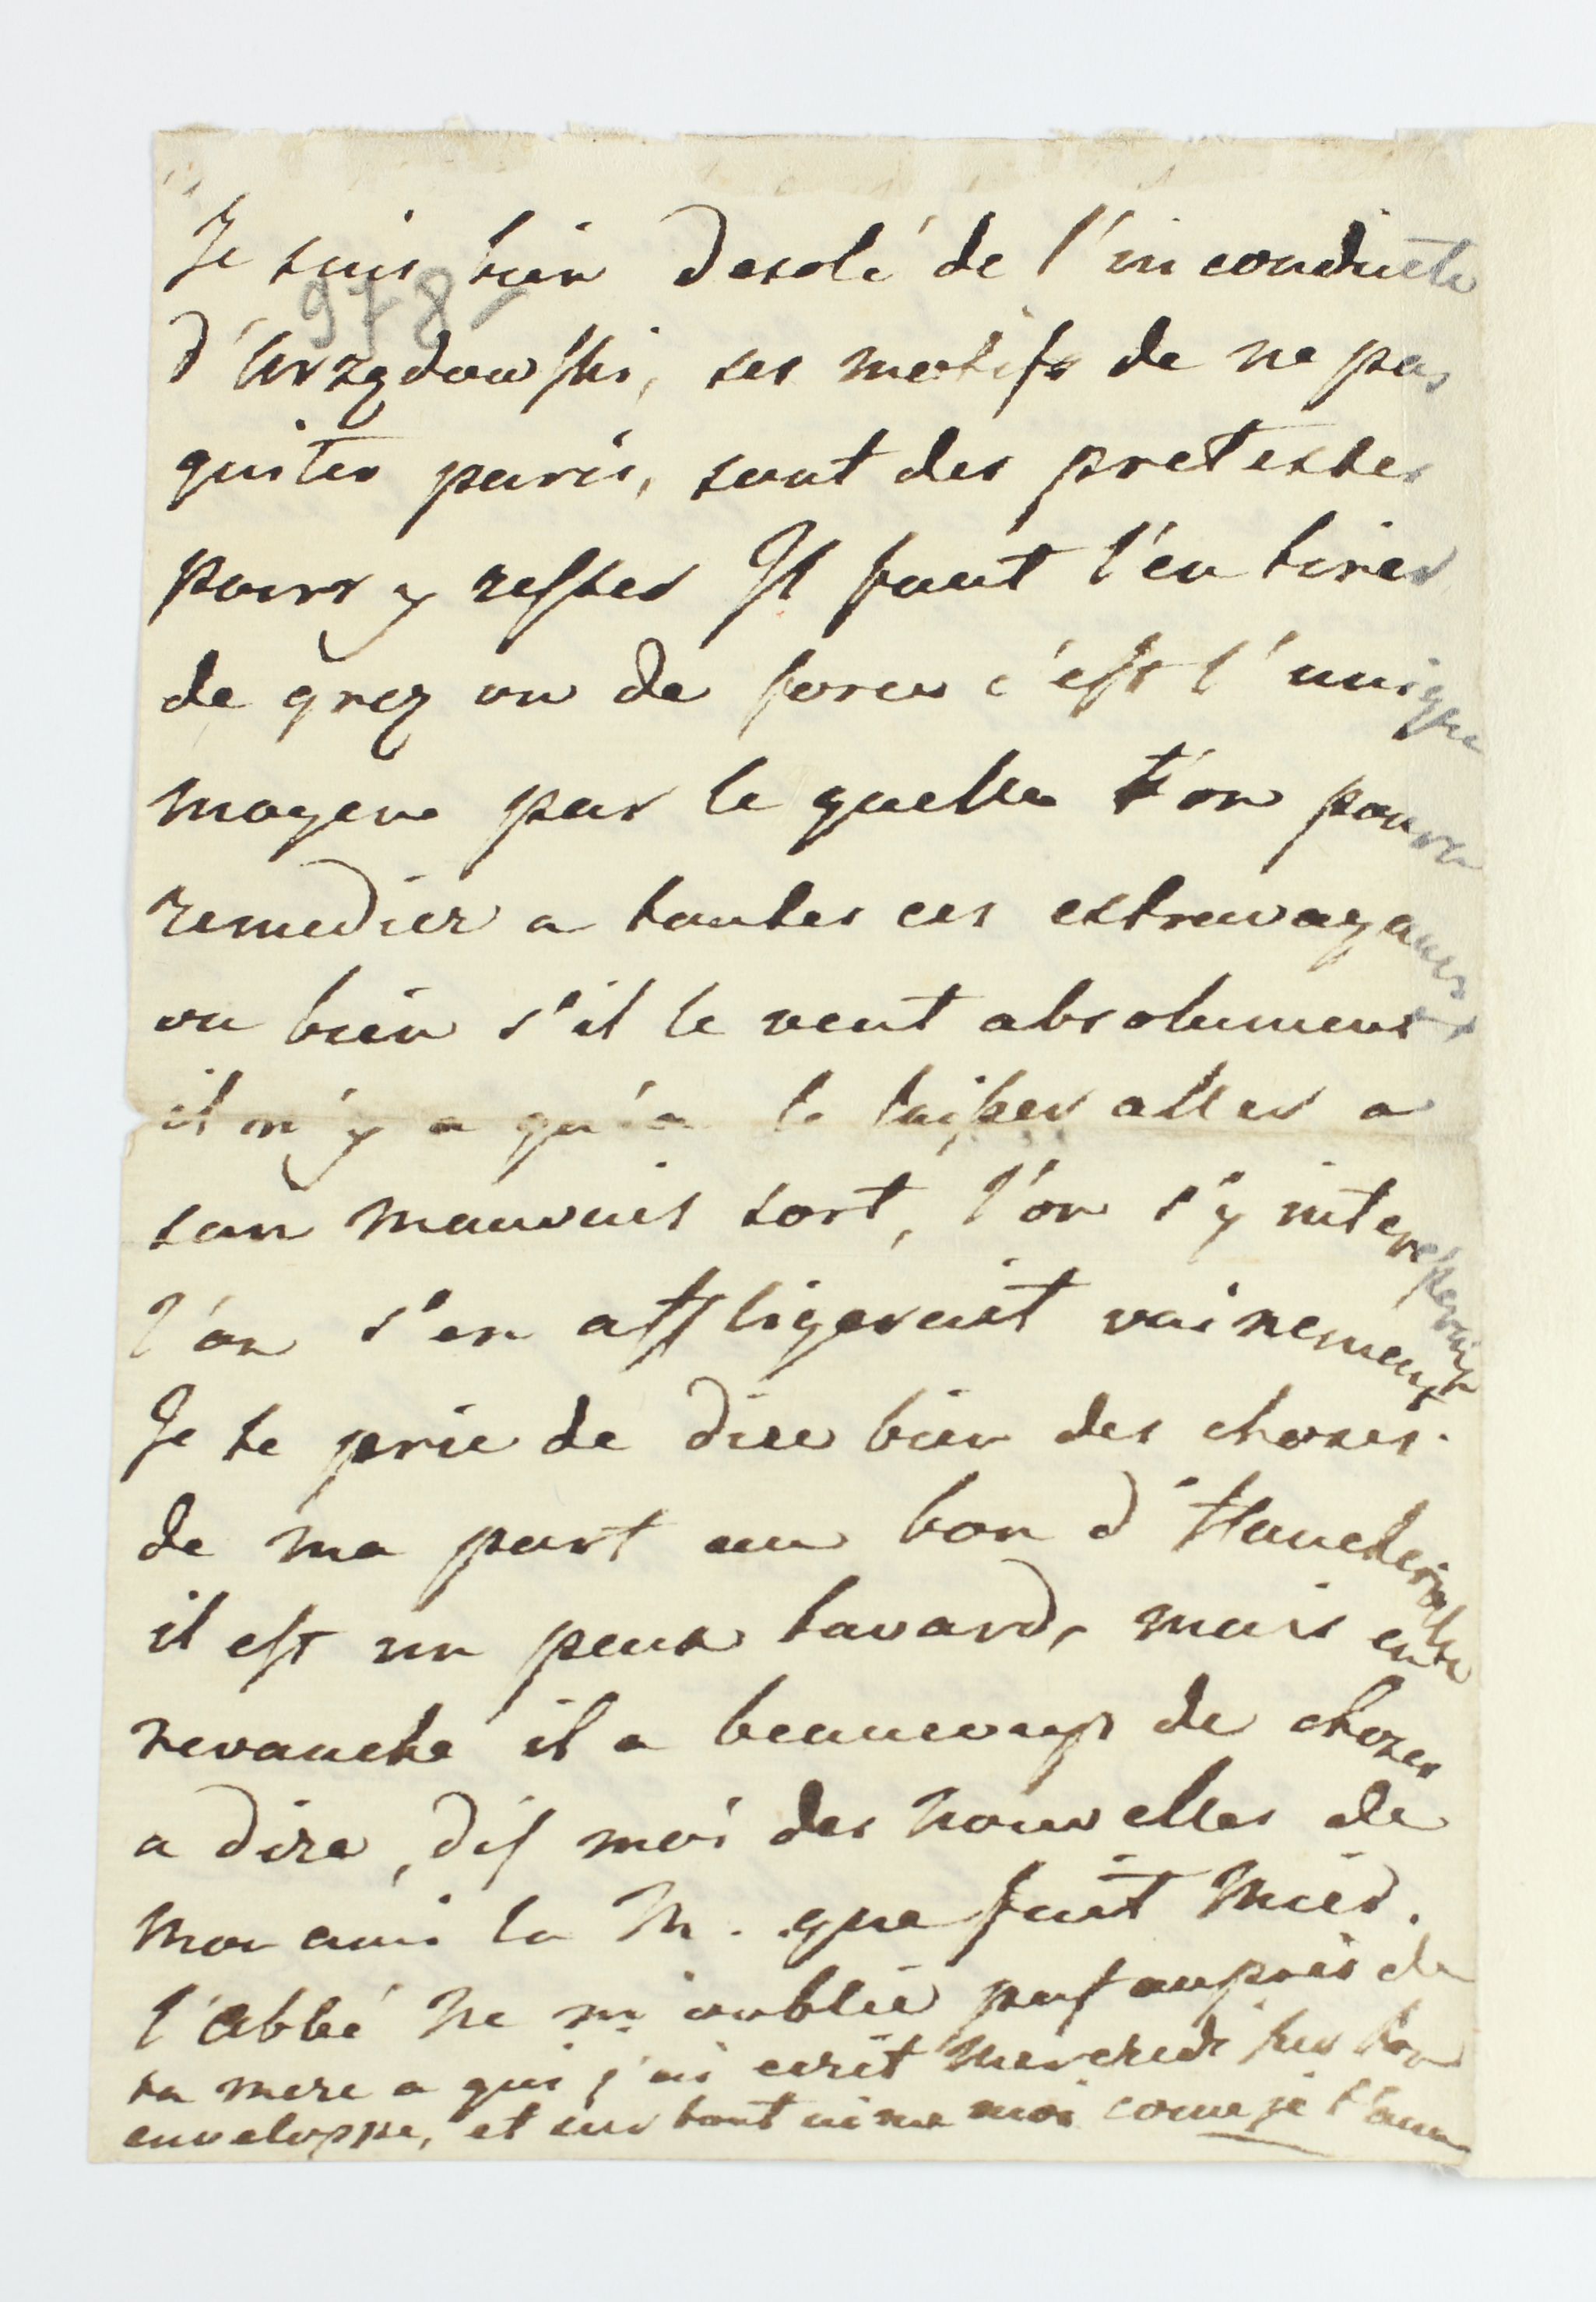 Je suis bien desolé de l'inconduite
978
d'Urzędowski, ses motifs de ne pas
quiter paris, sont des pretextes
pour y rester Il faut l'en tirer
de grez ou de force c'est l'unique
moyene par le quelle l'on poura
remedier a toutes ces extravagances
ou bien s'il le veut absolument
il n'y a qu'a le laisser aller a
son mauvais sort, l'on s'y interesserait
l'on s'en affligerait vainement
Je te prie de dire bien des choses
de ma part au bon
il est un peux bavard, mais en
revanche il a beaucoup de choses
a dire, dis moi des nouvelles de
mon ami la M. que fait
l'Abbé ne m'oublie pas auprès de
ta mere a qui j'ai ecrit Mercredi sus ton
enveloppe, et sur tout aime moi come je t'aime